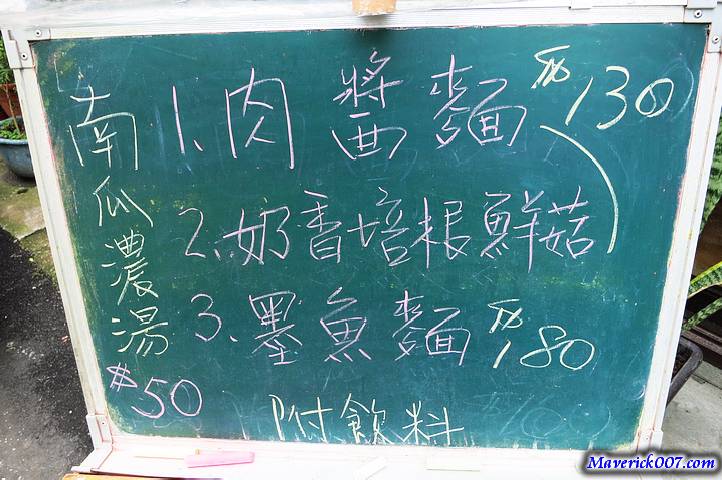 南瓜濃湯
$50
1.肉醬麵 $130
2.奶香培根鮮菇
3.墨魚麵 $180
附飲料
Maverick007.com